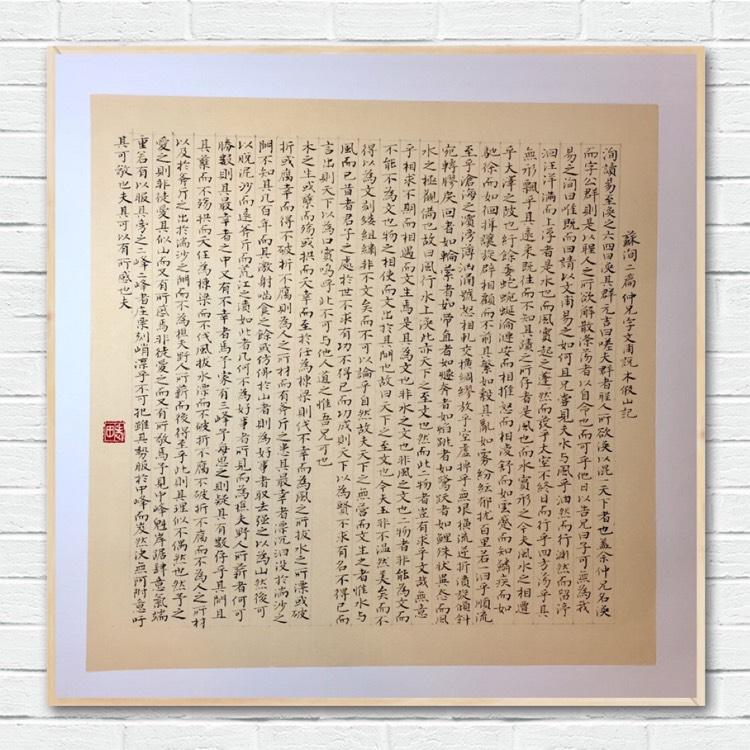 蘇洵二篇仲兄字文甫說木假山記
洵讀易至渙之六四曰渙其群元吉曰嗟夫群者聖人所欲渙以混一天下者也蓋余仲兄名渙
而字公群則是以聖人之所欲解散滌蕩者以自命也而可乎他日以告兄曰子可無為我
易之洵曰唯既而曰請以文甫易之如何且兄嘗見夫水與風乎油然而行淵然而留渟
洄汪洋滿而上浮者是水也而風實起之蓬然而發乎太空不終日而行乎四方蕩乎其
無形飄乎其遠來既往而不知其迹之所存者是風也而水實形之今夫風水之相遭
乎大澤之陂也紆餘委蛇蜿蜒淪漣安而相推怒而相凌舒而如雲蹙而如鱗疾而如
馳徐而如徊揖讓旋辟相顧而不前其繁如縠其亂如霧紛紜郁擾百里若一汩乎順流
至乎滄海之濱滂薄洶涌號怒相軋交橫綢繆放乎空虛掉乎無垠橫流逆折濆旋傾側
宛轉膠戾回者如輪縈者如帶直者如燧奔者如焰跳者如鷺躍者如鯉殊狀異態而風
水之極觀備也故曰風行水上渙此亦天下之至文也然而此二物者豈有求乎文哉無意
乎相求不期而相遇而文生焉是其為文也非水之文也非風之文也二物者非能為文而
不能不為文也物之相使而文出於其間也故曰天下之至文也今夫玉非不溫然美矣而不
得以為文刻鏤組繡非不文矣而不可以論乎自然故夫天下之無營而文生之者惟水與
風而已昔者君子之處於世不求有功不得已而功成則天下以為賢不求有名不得已而
言出則天下以為口實嗚乎此不可與他人道之惟吾兄可也
木之生或蘖而殤或拱而夭幸而至於任為棟梁則伐不幸而為風之所拔水之所漂或破
折或腐幸而得不破折不腐則為人之所材而有斧斤之患其最幸者漂沉汩沒於湍沙之
間不知其幾百年而其激射嚙食之餘或仿佛於山者則為好事者取去強之以為山然後可
以脫泥沙而遠斧斤而荒江之濆如此者幾何不為好事者所見而為樵夫野人所薪者何可
勝數則其最幸者之中又有不幸者焉予家有三峰予每思之則疑其有數存乎其間且
其蘖而不殤拱而夭任為棟梁而不伐風拔水漂而不破折不腐不破折不腐而不為人之所材
以及於斧斤之出於湍沙之間而不為樵夫野人所薪而後得至乎此則其理似不偶然也然予之
愛之則非徒愛其似山而又有所感焉非徒愛之而又有所敬焉予見中峰魁岸踞肆意氣端
重若有以服其旁之二峰二峰者莊栗刻峭凜乎不可犯雖其勢服於中峰而岌然決無阿附意吁
其可敬也夫其可以有所感也夫